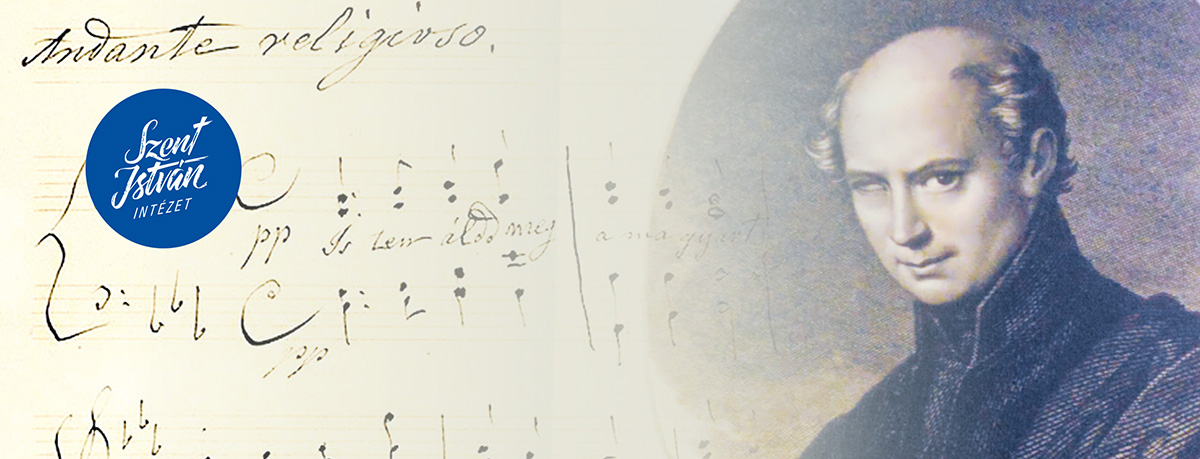 Andante religioso.
Szent
István
INTÉZET
pp Is ten áldd meg a magyart
pp